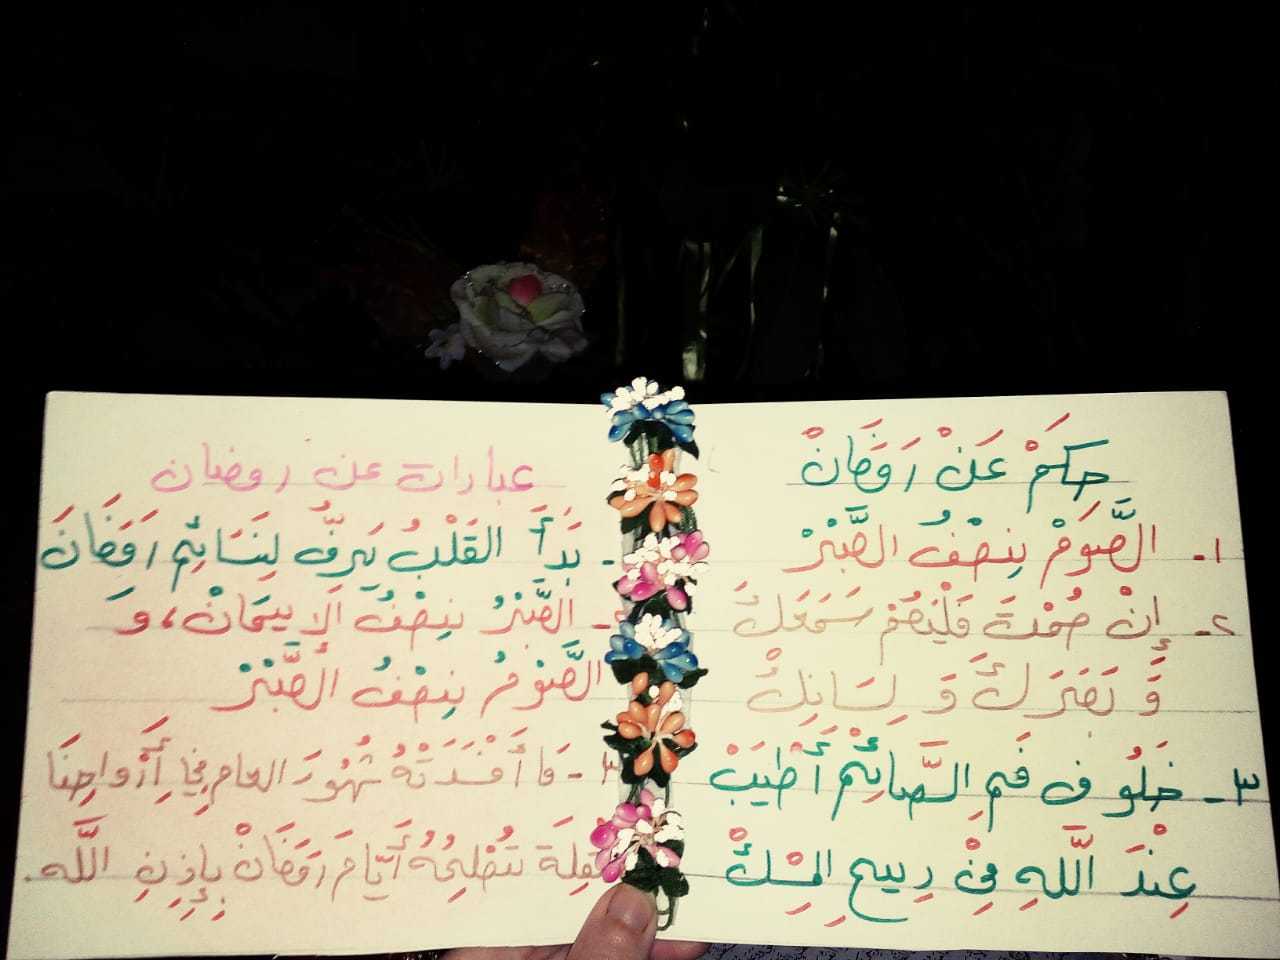 حِكَمْ عَنْ رَمَضَانْ
١- الصَّوْمْ نِصْفُ الصَّبْرْ
٢- إِنْ صُمْتَ فَليَصُمْ سَمَعَكَ
وَ بَصَرَكَ وَ لِسَانِكْ
٣- خَلُوف فَمِ الصَّائِمْ أَطْيَبْ
عِنْدَ اللَّهِ مِنْ رِيحِ المِسْكْ
عبارات عن رمضان
- بَدَأَ القَلْبُ يَرِفُّ لِنَسَائِمِ رَمَضَانَ
٢- الصَّبْرُ نِصْفُ الإِيمَانْ، وَ
الصَّوْمُ نِصْفُ الصَّبْرْ
٣- مَا أَفْسَدَتْهُ شُهُورَ العَامِ فِي أَرْوَاحِنَا
تُصْلِحُهُ أَيَّامَ رَمَضَانْ بِإِذِنِ اللَّه.